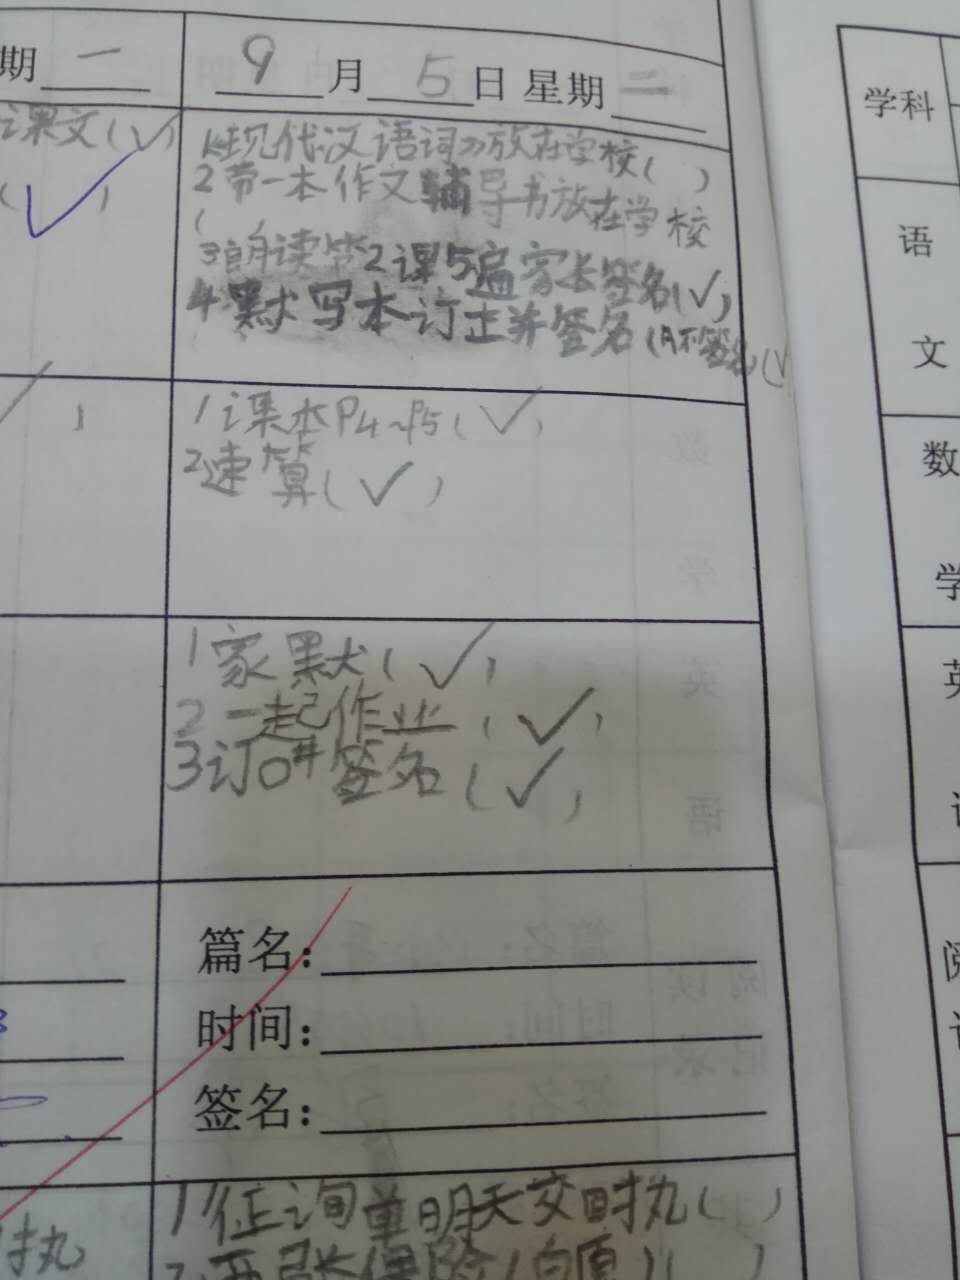 期 一
9 月 5 日 星期 二
学科
课文(✓)
(✓)
1《现代汉语词》放在学校( )
2 带一本作文辅导书放在学校
( )
3 朗读第2课5遍家长签名(✓)
4 默写本订正并签名(
语
文
1 课本P4~P5(✓)
2 速算(✓)
数
学
1 家默(✓)
2 一起作业(✓)
3 订 签名(✓)
英
篇名:
时间:
签名:
阅
1 征询单明天交回执( )
执
2 两